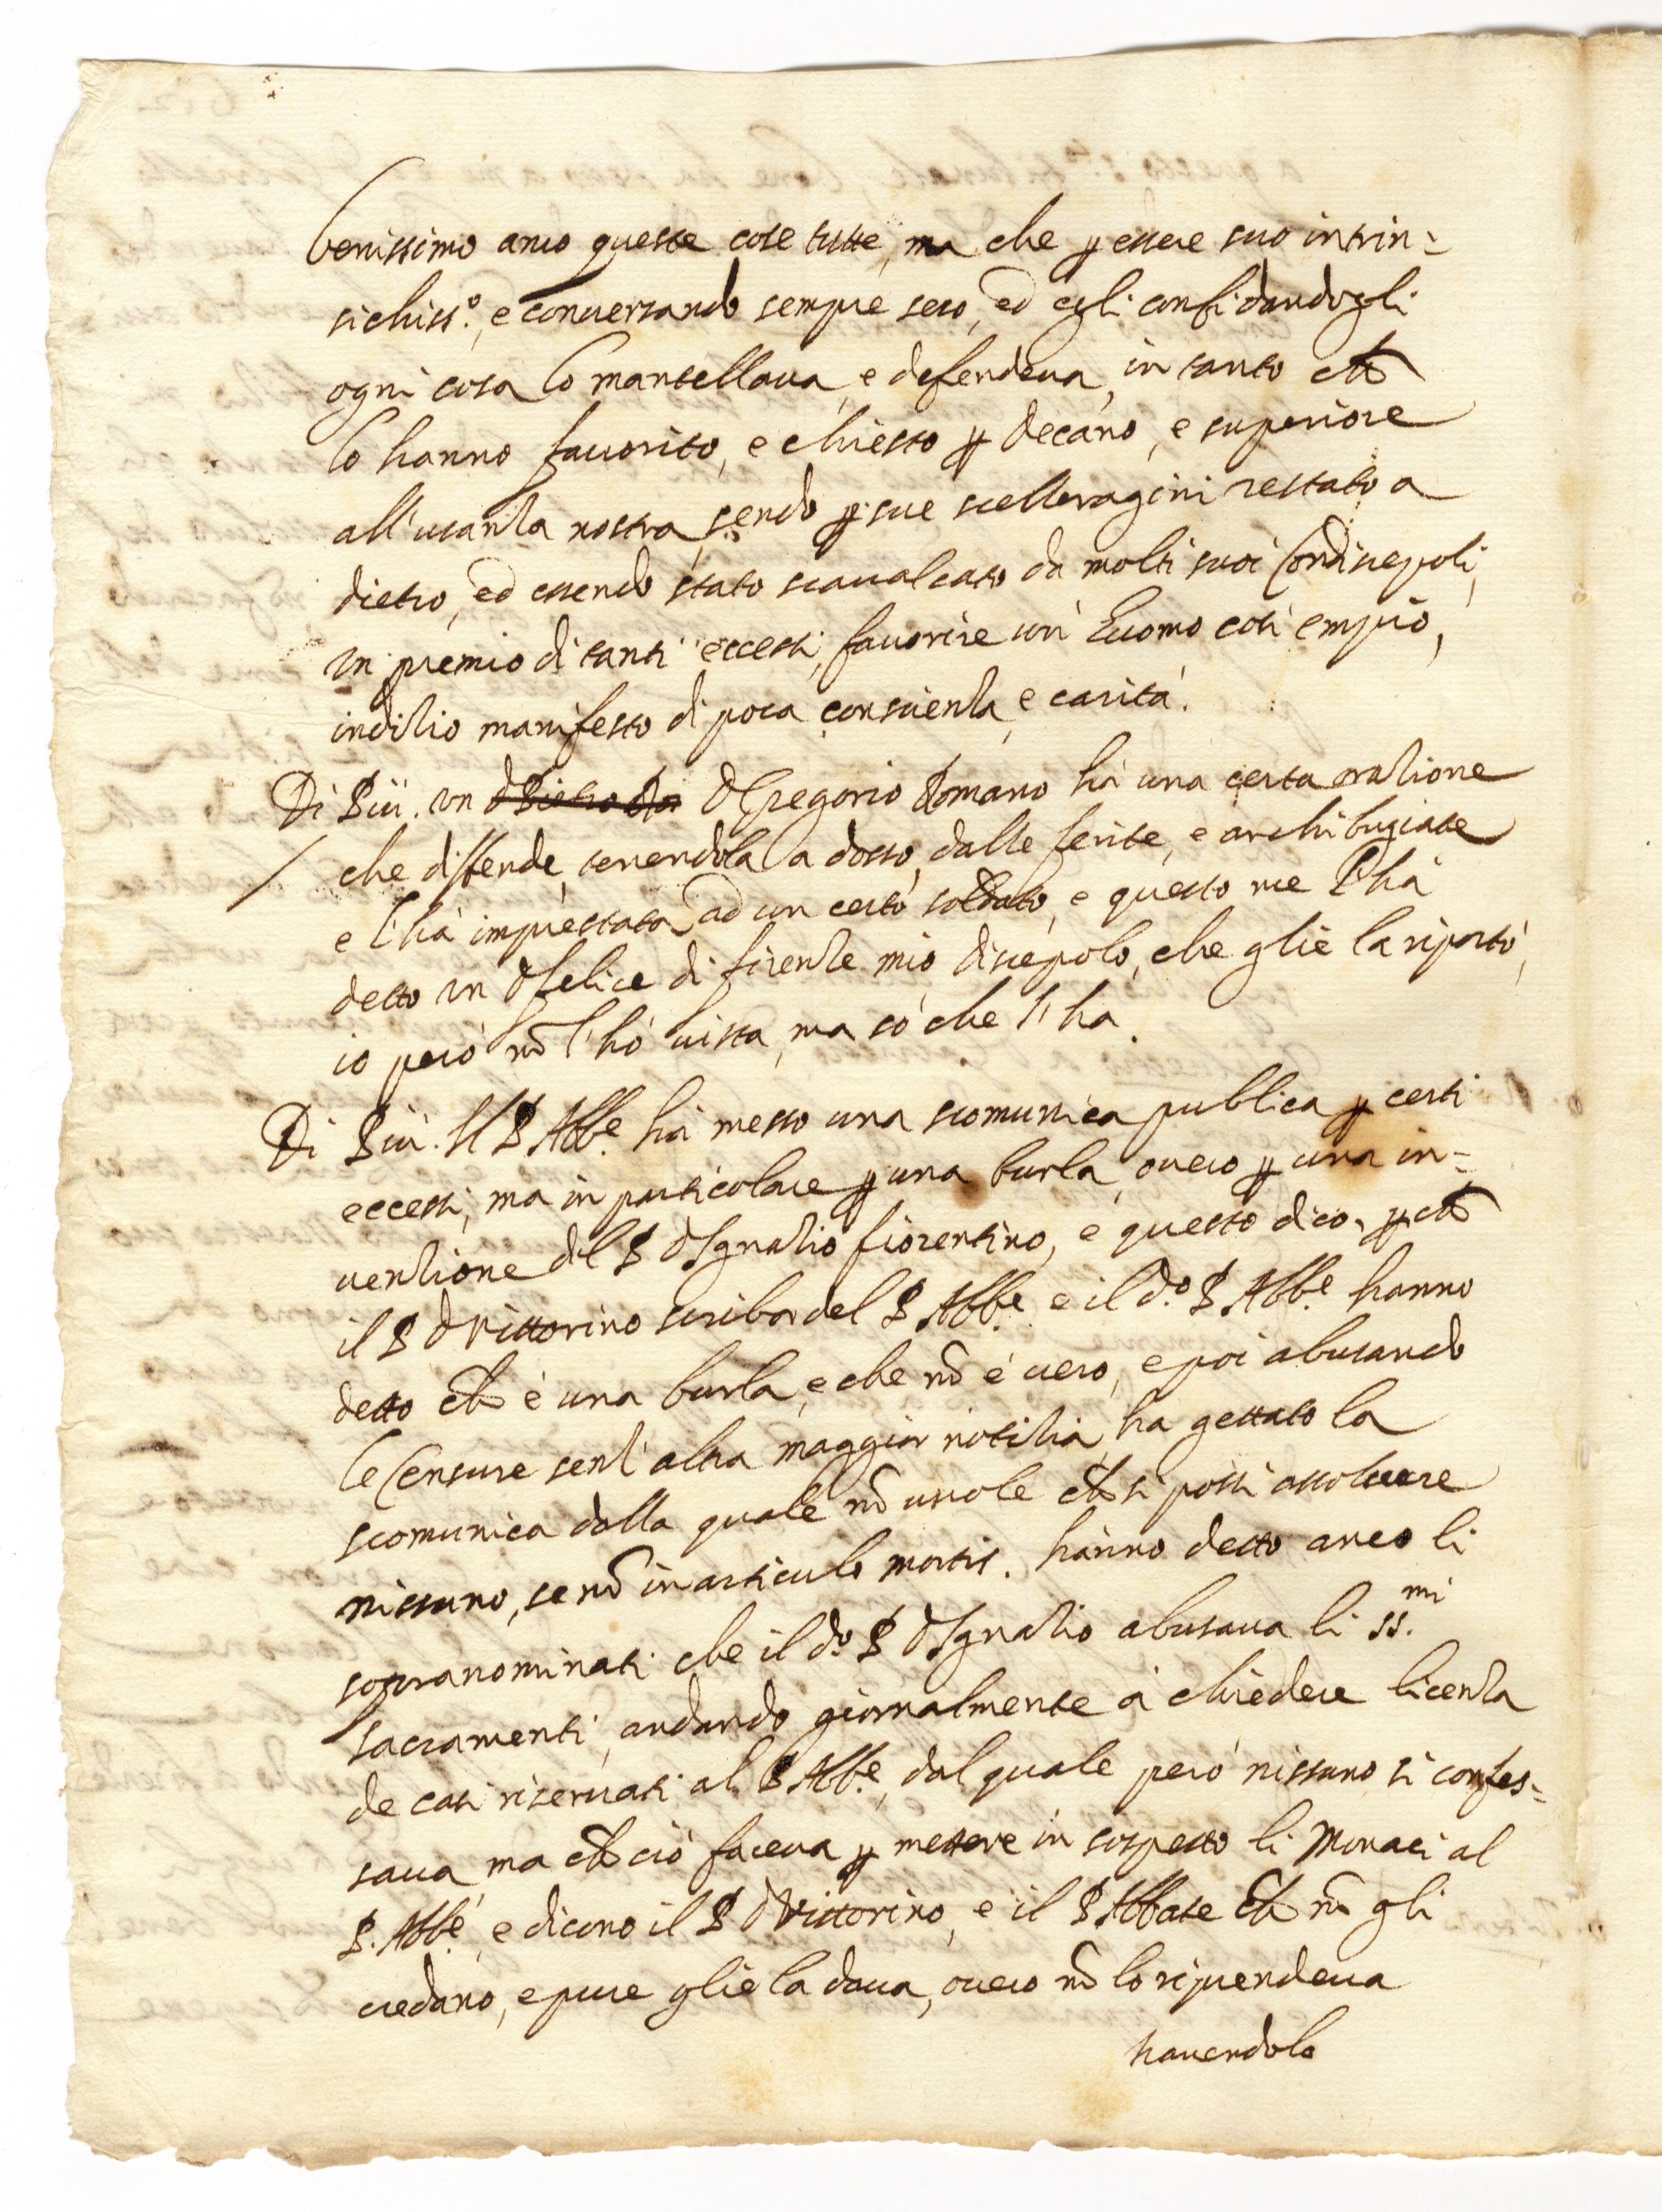 benissimo anco queste cose tutte, ma che p essere suo intrin=
sichiss.º, e conuersando sempre seco, ed egli confidandogli
ogni cosa lo mantellaua, e defendeua, in tanto che
lo hanno fauorito, e chiesto p Decano, e superiore
all'usanza nostra, sendo p sue scelleragini restato a
dietro, ed essendo stato scaualcato da molti suoi Condisepoli,
in premio di tanti eccessi, fauorire un' Huomo così empio,
indizio manifesto di poca conscienza, e carità.
Di Più. un D Gregorio Romano hà una certa orazione
che diffende, tenendola a dosso, dalle ferite, e archibugiate
e l'hà imprestata ad un certo soldato, e questo me l'hà
detto un D felice di firenze mio discepolo, che glie la riportò,
io però nõ l'hò uista, ma sò che l'ha.
Di Più. Il P Abb.e hà messo una scomunica publica p certi
eccessi, ma in particolare p una burla, ouero p una in=
uenzione del P D Ignazio fiorentino, e questo dico, p che
il P D Vittorino scriba del P Abb.e e il d.º P Abb.e hanno
detto che è una burla, e che nõ è uero, e poi abusando
le Censure senz'altra maggior notizia, ha gettato la
scomunica dalla quale nõ uuole che si possi assoluere
nissuno, se nõ in articulo mortis. hanno detto anco li
sopranominati che il d.º P D Ignazio abusaua li ss.mi
sacramenti, andando giornalmente à chiedere licenza
de casi riseruati al P Abb.e, dal quale però nissuno si confes=
saua ma che ciò faceua p mettere in sospetto li Monaci al
P. Abb.e, e dicono il P D Vittorino, e il P Abbate che nõ gli
credano, e pure glie la daua, ouero nõ lo riprendeua
hauendolo